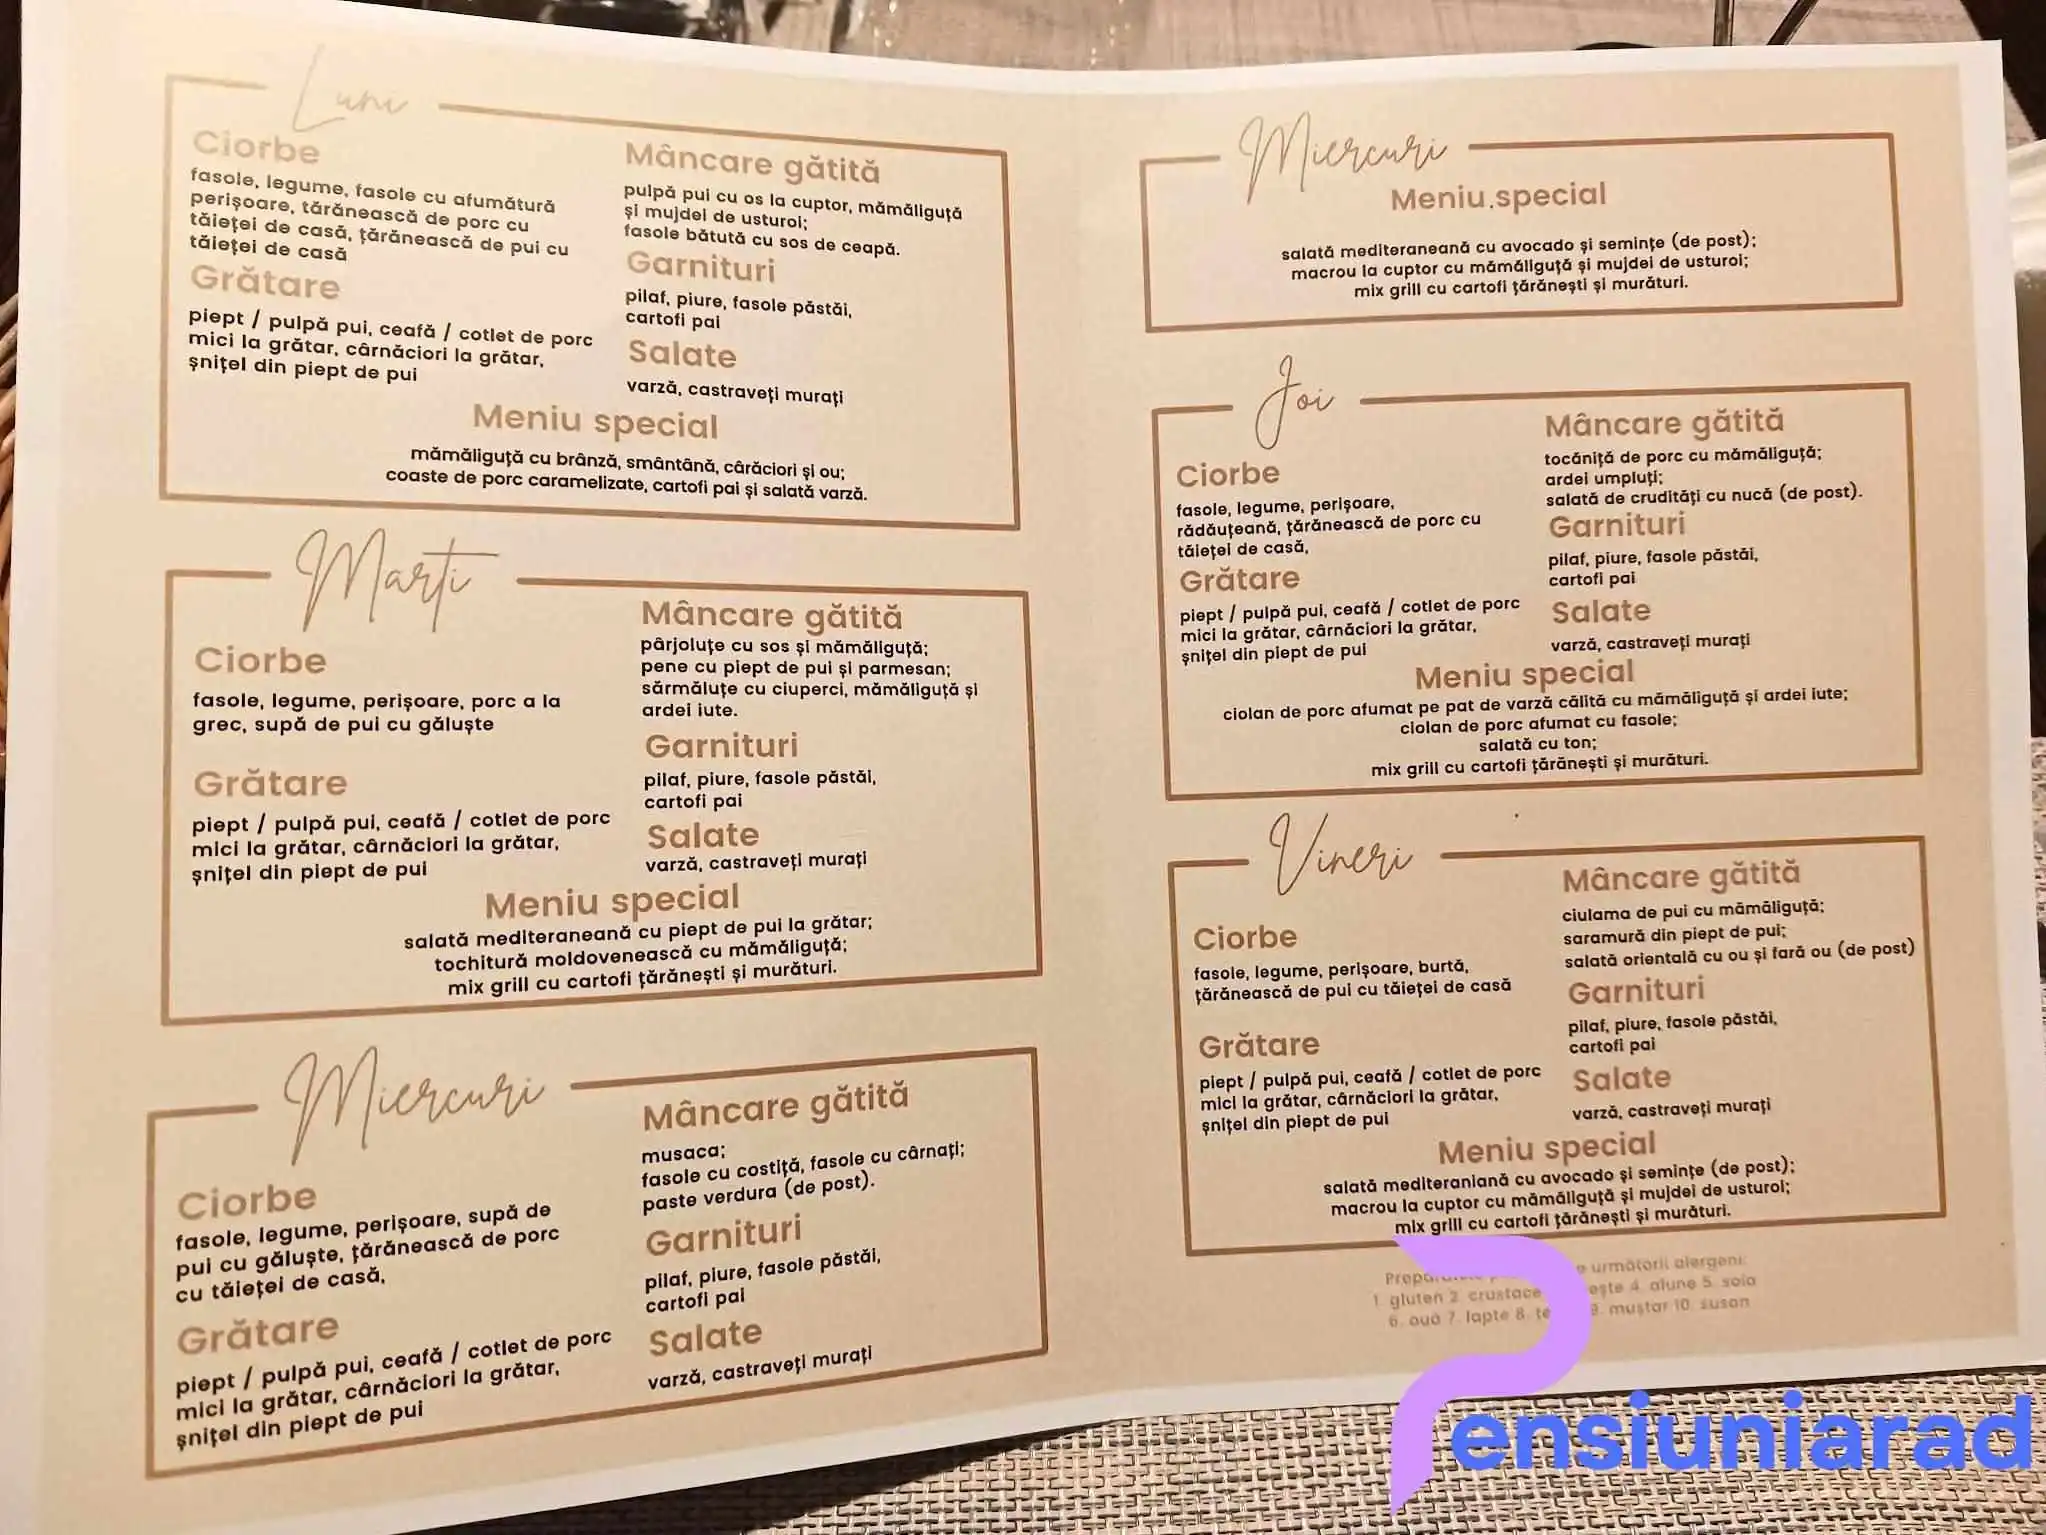 Luni
Ciorbe
fasole, legume, fasole cu afumătură
perișoare, tărănească de porc cu
tăieței de casă, țărănească de pui cu
tăieței de casă
Grătare
piept / pulpă pui, ceafă / cotlet de porc
mici la grătar, cârnăciori la grătar,
șnițel din piept de pui
Mâncare gătită
pulpă pui cu os la cuptor, mămăliguță
și mujdei de usturoi;
fasole bătută cu sos de ceapă.
Garnituri
pilaf, piure, fasole păstăi,
cartofi pai
Salate
varză, castraveți murați
Meniu special
mămăliguță cu brânză, smântână, cârăciori și ou;
coaste de porc caramelizate, cartofi pai și salată varză.
Marți
Ciorbe
fasole, legume, perișoare, porc a la
grec, supă de pui cu găluște
Grătare
piept / pulpă pui, ceafă / cotlet de porc
mici la grătar, cârnăciori la grătar,
șnițel din piept de pui
Mâncare gătită
pârjoluțe cu sos și mămăliguță;
pene cu piept de pui și parmesan;
sărmăluțe cu ciuperci, mămăliguță și
ardei iute.
Garnituri
pilaf, piure, fasole păstăi,
cartofi pai
Salate
varză, castraveți murați
Meniu special
salată mediteraneană cu piept de pui la grătar;
tochitură moldovenească cu mămăliguță;
mix grill cu cartofi țărănești și murături.
Miercuri
Ciorbe
fasole, legume, perișoare, supă de
pui cu găluște, țărănească de porc
cu tăieței de casă,
Grătare
piept / pulpă pui, ceafă / cotlet de porc
mici la grătar, cârnăciori la grătar,
șnițel din piept de pui
Mâncare gătită
musaca;
fasole cu costiță, fasole cu cârnați;
paste verdura (de post).
Garnituri
pilaf, piure, fasole păstăi,
cartofi pai
Salate
varză, castraveți murați
Miercuri
Meniu.special
salată mediteraneană cu avocado și semințe (de post);
macrou la cuptor cu mămăliguță și mujdei de usturoi;
mix grill cu cartofi țărănești și murături.
Joi
Ciorbe
fasole, legume, perișoare,
rădăuțeană, țărănească de porc cu
tăieței de casă,
Grătare
piept / pulpă pui, ceafă / cotlet de porc
mici la grătar, cârnăciori la grătar,
șnițel din piept de pui
Mâncare gătită
tocăniță de porc cu mămăliguță;
ardei umpluți;
salată de crudități cu nucă (de post).
Garnituri
pilaf, piure, fasole păstăi,
cartofi pai
Salate
varză, castraveți murați
Meniu special
ciolan de porc afumat pe pat de varză călită cu mămăliguță și ardei iute;
ciolan de porc afumat cu fasole;
salată cu ton;
mix grill cu cartofi țărănești și murături.
Vineri
Ciorbe
fasole, legume, perișoare, burtă,
țărănească de pui cu tăieței de casă
Grătare
piept / pulpă pui, ceafă / cotlet de porc
mici la grătar, cârnăciori la grătar,
șnițel din piept de pui
Mâncare gătită
ciulama de pui cu mămăliguță;
saramură din piept de pui;
salată orientală cu ou și fară ou (de post)
Garnituri
pilaf, piure, fasole păstăi,
cartofi pai
Salate
varză, castraveți murați
Meniu special
salată mediteraniană cu avocado și semințe (de post);
macrou la cuptor cu mămăliguță și mujdei de usturoi;
mix grill cu cartofi țărănești și murături.
următorii alergeni:
1. gluten 2. crustace 4. alune 5. soia
6. ouă 7. lapte 8. 9. muștar 10. susan
Pensiuniarad